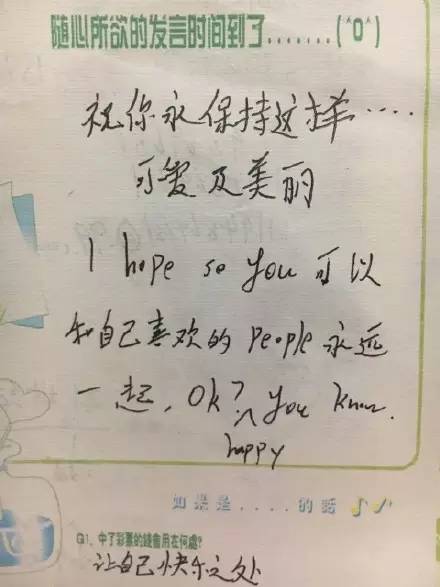 随心所欲的发言时间到了.......(^0^)
祝你永保持这样....
可爱及美丽
I hope so you 可以
和自己喜欢的 people 永远
一起, Ok? you know.
happy
如果是....的話
Q1、中了彩票的錢會用在何處?
让自己快乐之处